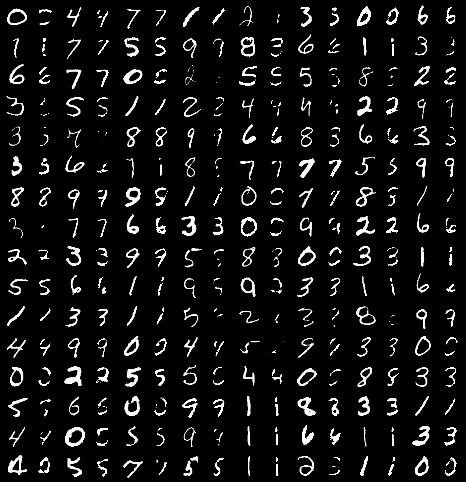 0 0 4 4 7 7 1 1 2 3 3 0 0 6 6
1 1 7 7 5 5 9 9 8 3 6 6 1 1 3 3
6 6 7 7 0 0 2 5 5 5 8 2 2
3 5 5 1 1 2 2 4 4 4 4 2 2 9 9
3 3 4 8 8 9 9 6 6 8 3 6 6 3 3
3 3 6 1 1 8 8 7 7 7 7 5 5 9 9
8 8 9 9 9 9 1 1 0 0 7 7 8 8 1 1
3 7 7 6 6 3 3 0 0 9 9 2 2 6 6
2 2 3 3 9 9 5 5 8 8 0 0 3 3 1 1
5 5 6 6 1 1 9 9 9 3 3 1 1 6
1 1 3 3 1 1 5 2 3 8 9 9
4 4 9 9 0 0 4 4 5 9 9 3 3 0 0
0 0 2 2 5 5 5 4 4 0 0 8 8 3 3
5 5 6 6 0 0 9 9 1 1 8 8 3 3 1 1
4 4 0 0 5 5 9 9 1 1 6 6 1 1 3 3
0 0 5 5 7 7 5 5 1 1 2 1 1 0 0